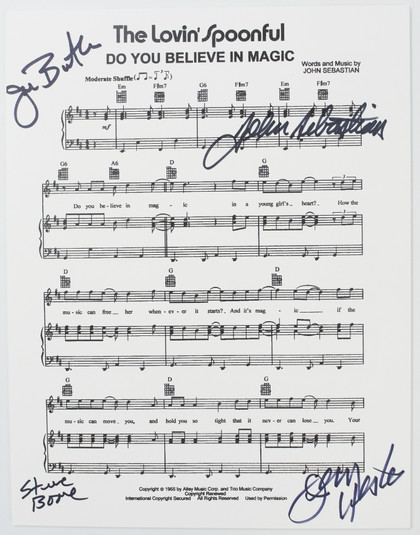 The Lovin' Spoonful
DO YOU BELIEVE IN MAGIC
Words and Music by
JOHN SEBASTIAN
Joe Butler
Moderate Shuffle
Em F♯m7 Em F♯m7 G6 F♯m7 Em F♯m7
mf
John Sebastian
G6 A6 D G
Do you be - lieve in mag - ic in a young girl's heart? How the
D G
mu - sic can free her when - ev - er it starts? And it's mag - ic if the
G D G
mu - sic can move you, and hold you so tight that it nev - er can lose you. Your
Steve
Boone
Jerry Yester
Copyright © 1965 by Alley Music Corp. and Trio Music Company
Copyright Renewed
International Copyright Secured All Rights Reserved Used by Permission